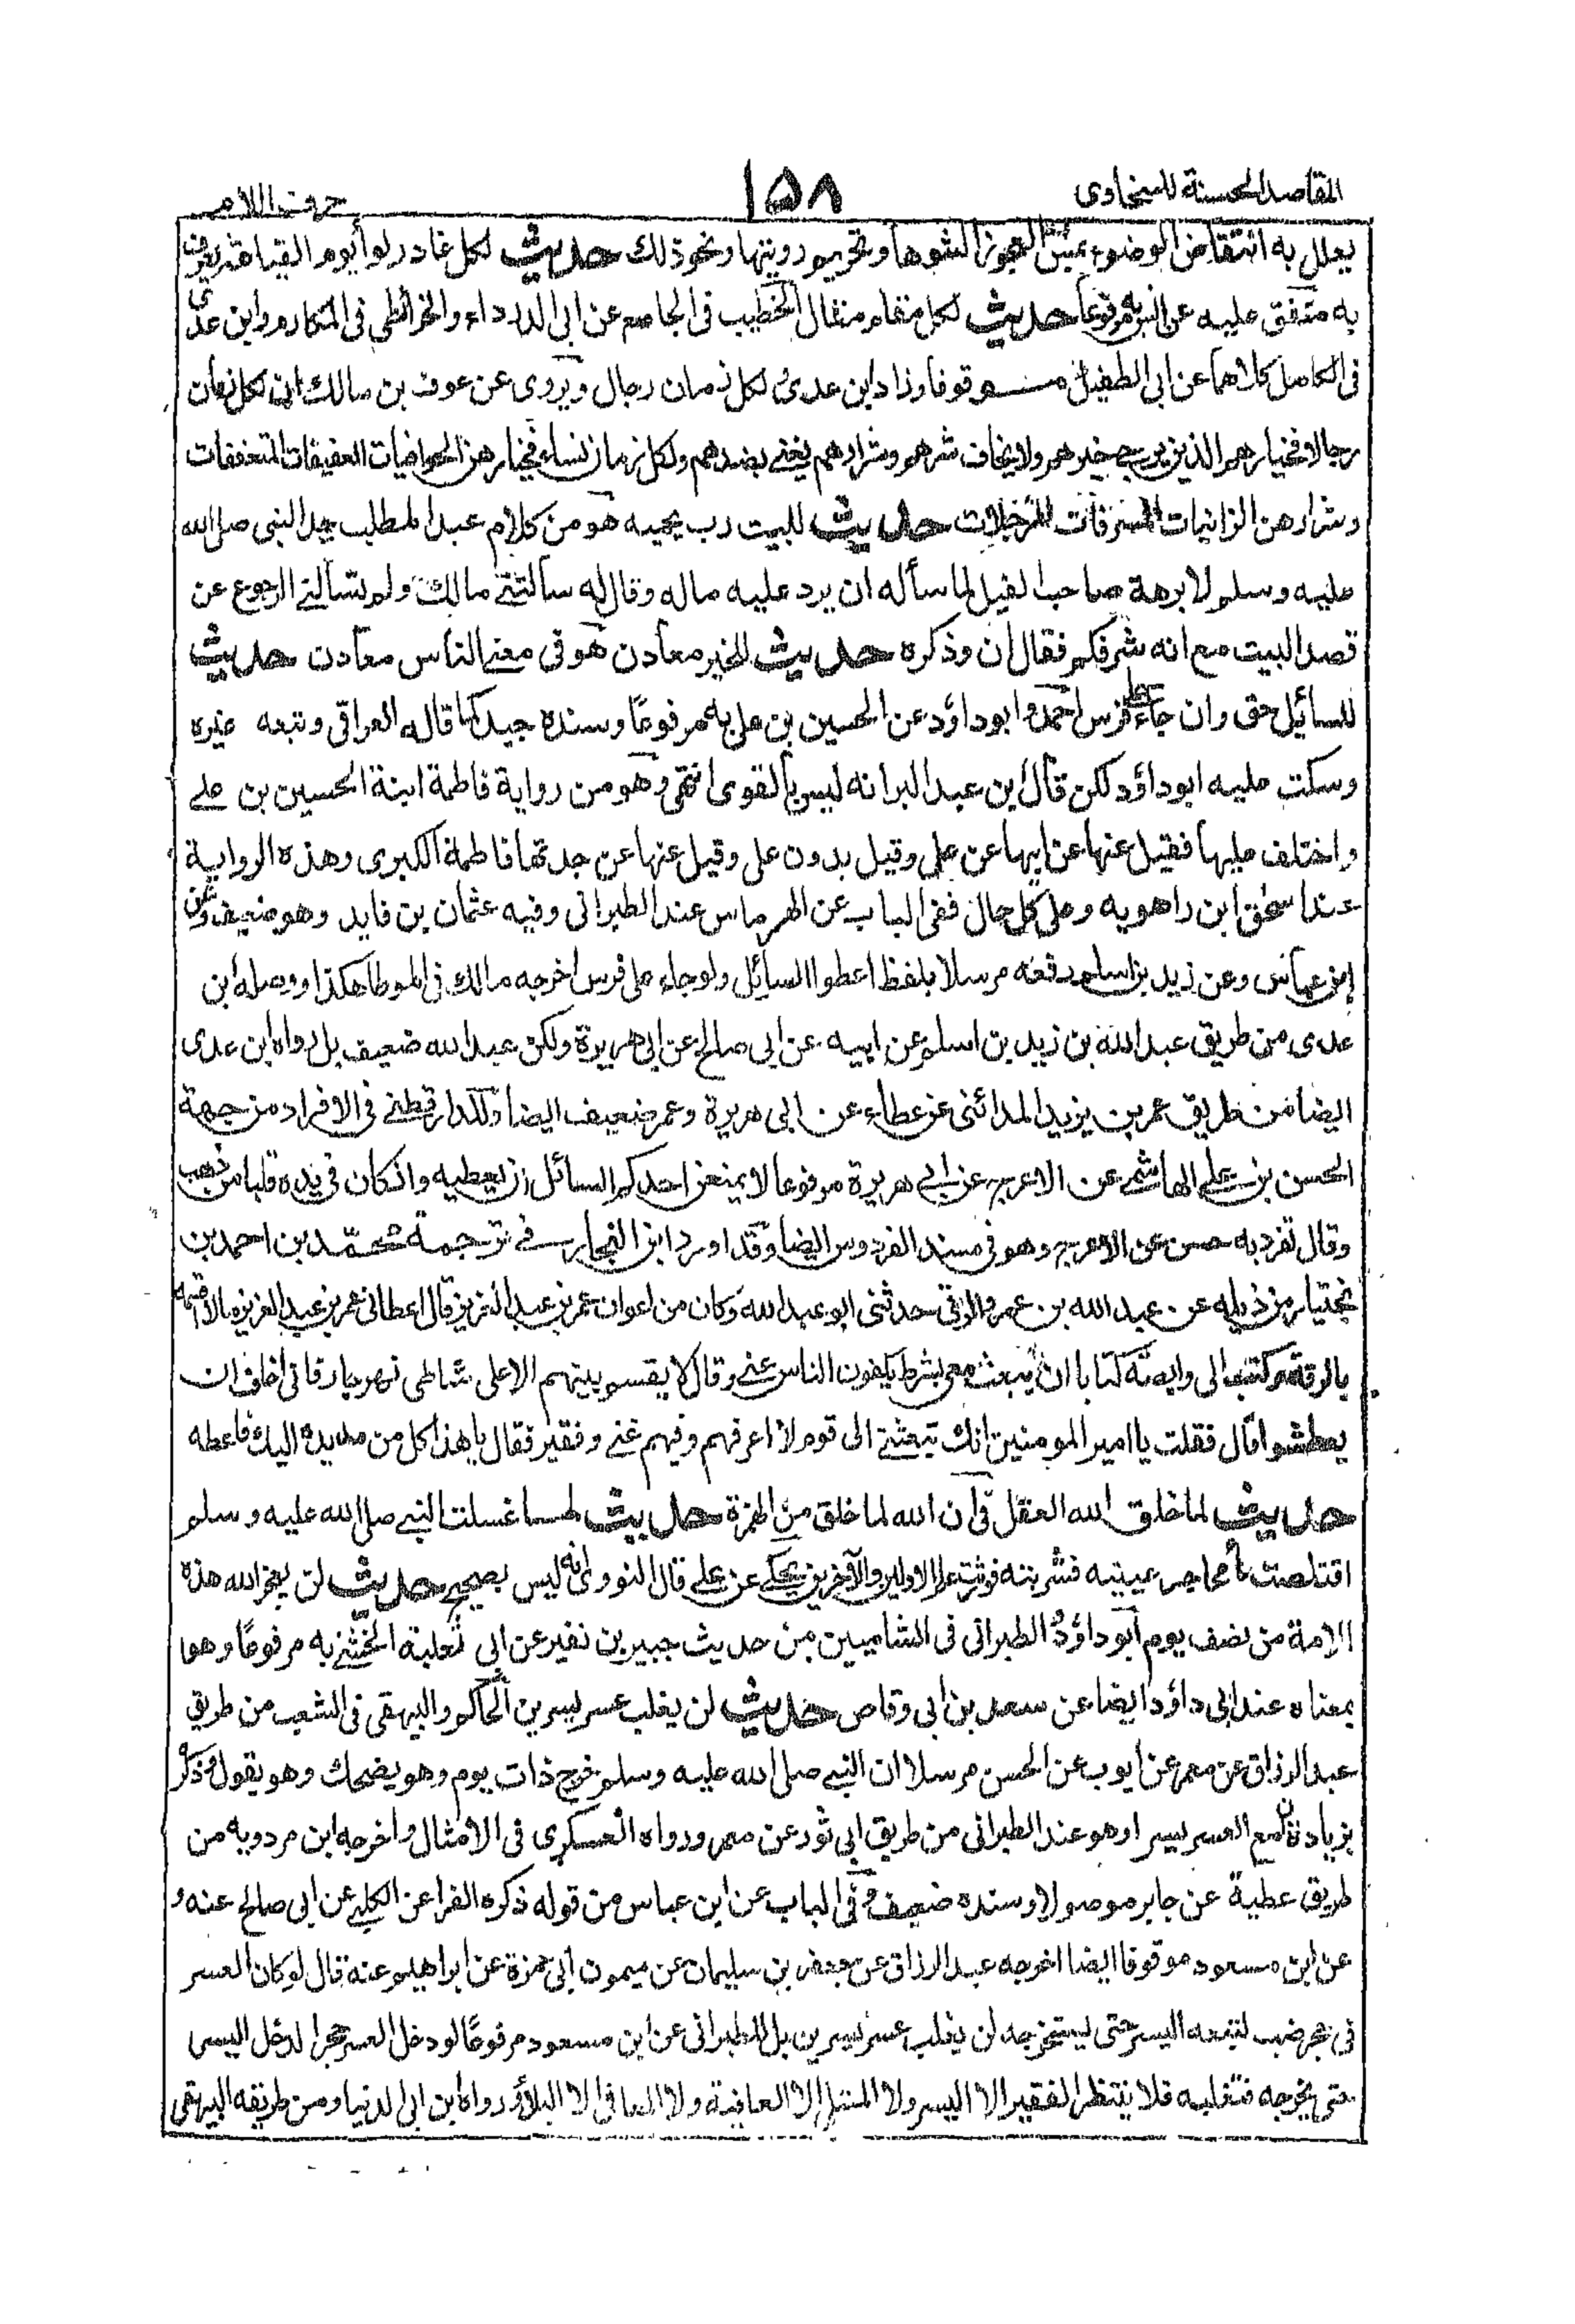 المقاصد الحسنة للسخاوى
١٥٨
حرف اللام
يعلل به انتقاض الوضوء بمس العجوز الشوهاء وتحريم رويتها ونحو ذلك حديث لكل غادر لواء يوم القيامة يعرف
به متفق عليه عن انس به مرفوعا حديث لكل مقام مقال الخطيب فى الجامع عن ابى الدرداء والخرائطى فى المكارم وابن عدى
فى الكامل كلاهما عن ابى الطفيل موقوفا وزاد ابن عدى لكل زمان رجال ويروى عن عوف بن مالك ان لكل زمان
رجالا فخيارهم الذين يرجى خيرهم ولا يخاف شرهم وشرارهم يعنى بضدهم ولكل زمان نساء فخيارهن الحواضيات العفيفات المتعففات
وشرارهن الزانيات المسرفات المترجلات حديث للبيت رب يحميه هو من كلام عبد المطلب جد النبى صلى الله
عليه وسلم لابرهة صاحب الفيل لما سأله ان يرد عليه ماله وقال له سألتنى مالك ولم تسألنى الرجوع عن
قصد البيت مع انه شرفكم فقال ان وذكره حديث للخير معادن هو فى معنى الناس معادن حديث
للسائل حق وان جاء على فرس احمد وابو داؤد عن الحسين بن على به مرفوعًا وسنده جيد كما قاله العراقى وتبعه غيره
وسكت عليه ابو داؤد لكن قال ابن عبد البر انه ليس بالقوى انتهى وهو من رواية فاطمة ابنة الحسين بن على
واختلف عليها فقيل عنها عن ابيها عن على وقيل بدون على وقيل عنها عن جدتها فاطمة الكبرى وهذه الرواية
عند اسحق ابن راهويه وعلى كل حال ففى الباب عن الهرماس عند الطبرانى وفيه عثمان بن فايد وهو ضعيف وعن
ابن عباس وعن زيد بن اسلم رفعه مرسلا بلفظ اعطوا السائل ولو جاء على فرس اخرجه مالك فى الموطا هكذا ووصله ابن
عدى من طريق عبد الله بن زيد بن اسلم عن ابيه عن ابى صالح عن ابى هريرة ولكن عبد الله ضعيف بل رواه ابن عدى
ايضا من طريق عمر بن يزيد المدائنى عن عطاء عن ابى هريرة وعمر ضعيف ايضا وللدارقطنى فى الافراد من جهة
الحسن بن على الهاشمى عن الاعرج عن ابى هريرة مرفوعا لا يمنعن احدكم السائل ان يعطيه وان كان فى يده قلبا من ذهب
وقال تفرد به حسن عن الاعرج وهو فى مسند الفردوس ايضا وقد اورد ابن النجار فى ترجمة محمد بن احمد بن
بختيار من ذيله عن عبد الله بن عمرو الرقى حدثنى ابو عبد الله وكان من اعوان عمر بن عبد العزيز قال اعطانى عمر بن عبد العزيز مالا اقسمه
بالرقة وكتب الى وابصة كتابا ان يبعث معى بشرط يكفون الناس عنى وقال لا يقسم بينهم الا على شاطى نهر جار فانى اخاف ان
يعطشوا قال فقلت يا امير المومنين انك تبعثنى الى قوم لا اعرفهم وفيهم غنى وفقير فقال يا هذا كل من مد يده اليك فاعطه
حديث لما خلق الله العقل فى ان الله لما خلق من الهمزة حديث لما غسلت النبى صلى الله عليه وسلم
اقتلصت ماء محاجر عينيه فشربته فورثت علم الاولين والآخرين يحكى عن على قال النووى انه ليس بصحيح حديث لن يعجز الله هذه
الامة من نصف يوم ابو داؤد الطبرانى فى الشاميين من حديث جبير بن نفير عن ابى ثعلبة الخشنى به مرفوعًا وهو
بمعناه عند ابى داؤد ايضا عن سعد بن ابى وقاص حديث لن يغلب عسر يسرين الحاكم والبيهقى فى الشعب من طريق
عبد الرزاق عن معمر عن ايوب عن الحسن مرسلا ان النبى صلى الله عليه وسلم خرج ذات يوم وهو يضحك وهو يقول وذكره
بزيادة ان مع العسر يسرا وهو عند الطبرانى من طريق ابى ثور عن معمر ورواه العسكرى فى الامثال واخرجه ابن مردويه من
طريق عطية عن جابر موصولا وسنده ضعيف وفى الباب عن ابن عباس من قوله ذكره الفرا عن الكلبى عن ابى صالح عنه و
عن ابن مسعود موقوفا ايضا اخرجه عبد الرزاق عن جعفر بن سليمان عن ميمون ابى حمزة عن ابراهيم عنه قال لو كان العسر
فى جحر ضب لتبعه اليسر حتى يستخرجه لن يغلب عسر يسرين بل للطبرانى عن ابن مسعود مرفوعًا لو دخل العسر جحرا لدخل اليسر
حتى يخرجه فتغلبه فلا ينتظر الفقير الا اليسر ولا المبتلى الا العافية ولا المعافى الا البلاء رواه ابن ابى الدنيا ومن طريقه البيهقى